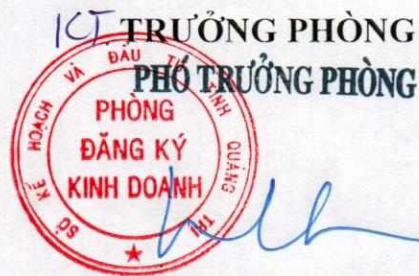 KT. TRƯỞNG PHÒNG
PHÓ TRƯỞNG PHÒNG
SỞ KẾ HOẠCH VÀ ĐẦU TƯ TỈNH QUẢNG TRỊ
PHÒNG
ĐĂNG KÝ
KINH DOANH